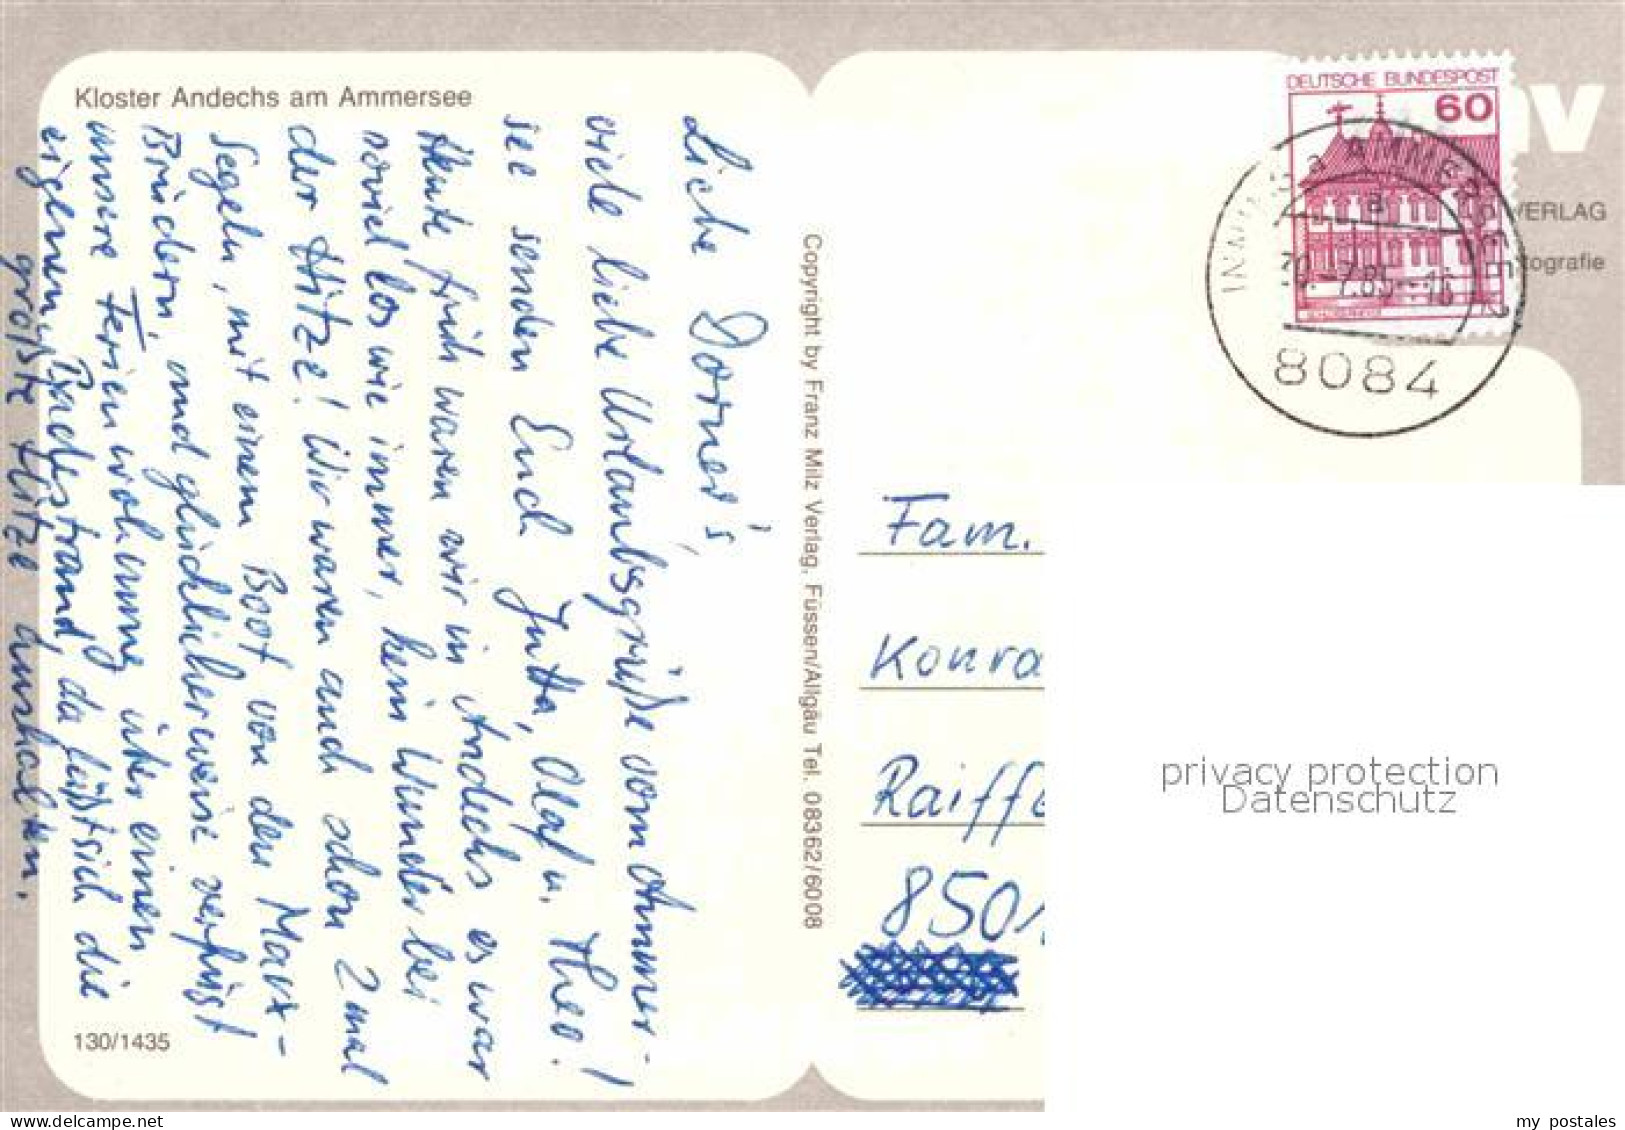 Kloster Andechs am Ammersee
Liebe Dorner's,
viele liebe Urlaubsgrüße vom Ammer-
see senden Euch Jutta, Olaf u. Theo!
Heute früh waren wir in Andechs es war
soviel los wie immer, kein Wunder bei
der Hitze! Wir waren auch schon 2 mal
Segeln, mit einem Boot von den Marx-
Brüdern, und glücklicherweise verfügt
unsere Ferienwohnung über einen
eigenen Badestrand, da läßt sich die
größte Hitze aushalten.
130/1435
Copyright by Franz Milz Verlag, Füssen/Allgäu Tel. 08362/6008
DEUTSCHE BUNDESPOST
60
INNING a AMMERSEE
a
30.-7.85.-16
8084
VERLAG
tografie
Fam.
Konra
Raiffe
850
privacy protection
Datenschutz
my postales